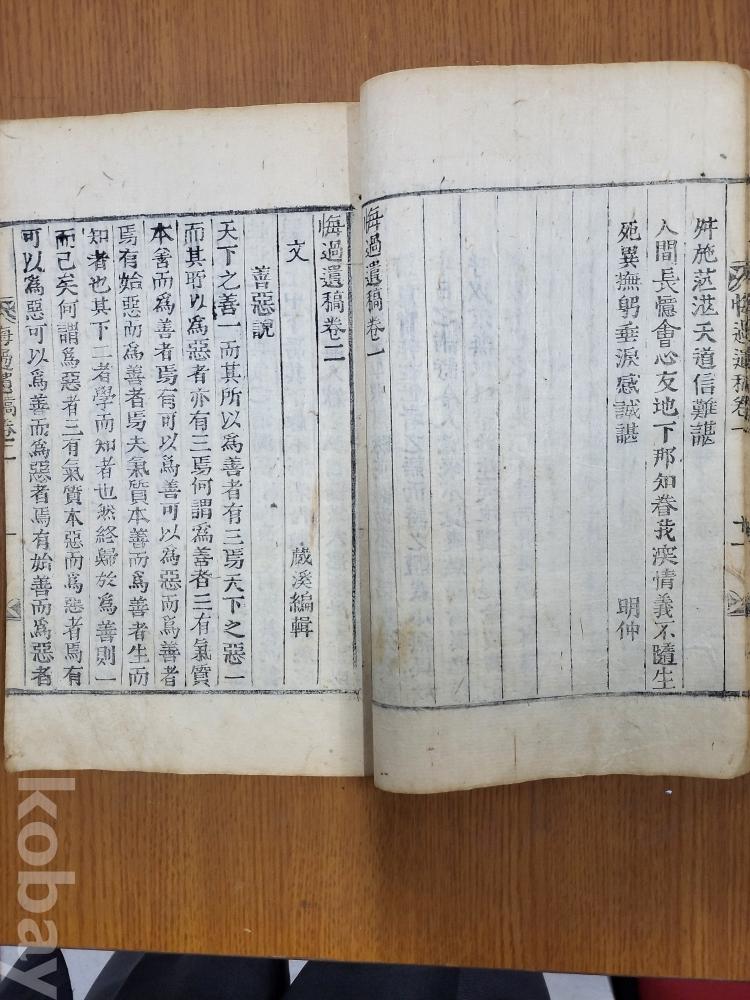 悔過遺稿卷一
舛施茫茫天道信難諶
人間長憶會心友地下那知眷我深情義不隨生
死異撫躬垂淚感誠諶
明仲
悔過遺稿卷一
悔過遺稿卷二
蕆溪編輯
文
善惡說
天下之善一而其所以爲善者有三焉天下之惡一
而其所以爲惡者亦有三焉何謂爲善者三有氣質
本善而爲善者焉有可以爲善可以爲惡而爲善者
焉有始惡而爲善者焉夫氣質本善而爲善者生而
知者也其下二者學而知者也然終歸於爲善則一
而已矣何謂爲惡者三有氣質本惡而爲惡者焉有
可以爲惡可以爲善而爲惡者焉有始善而爲惡者
悔過遺稿卷二
一
kobay